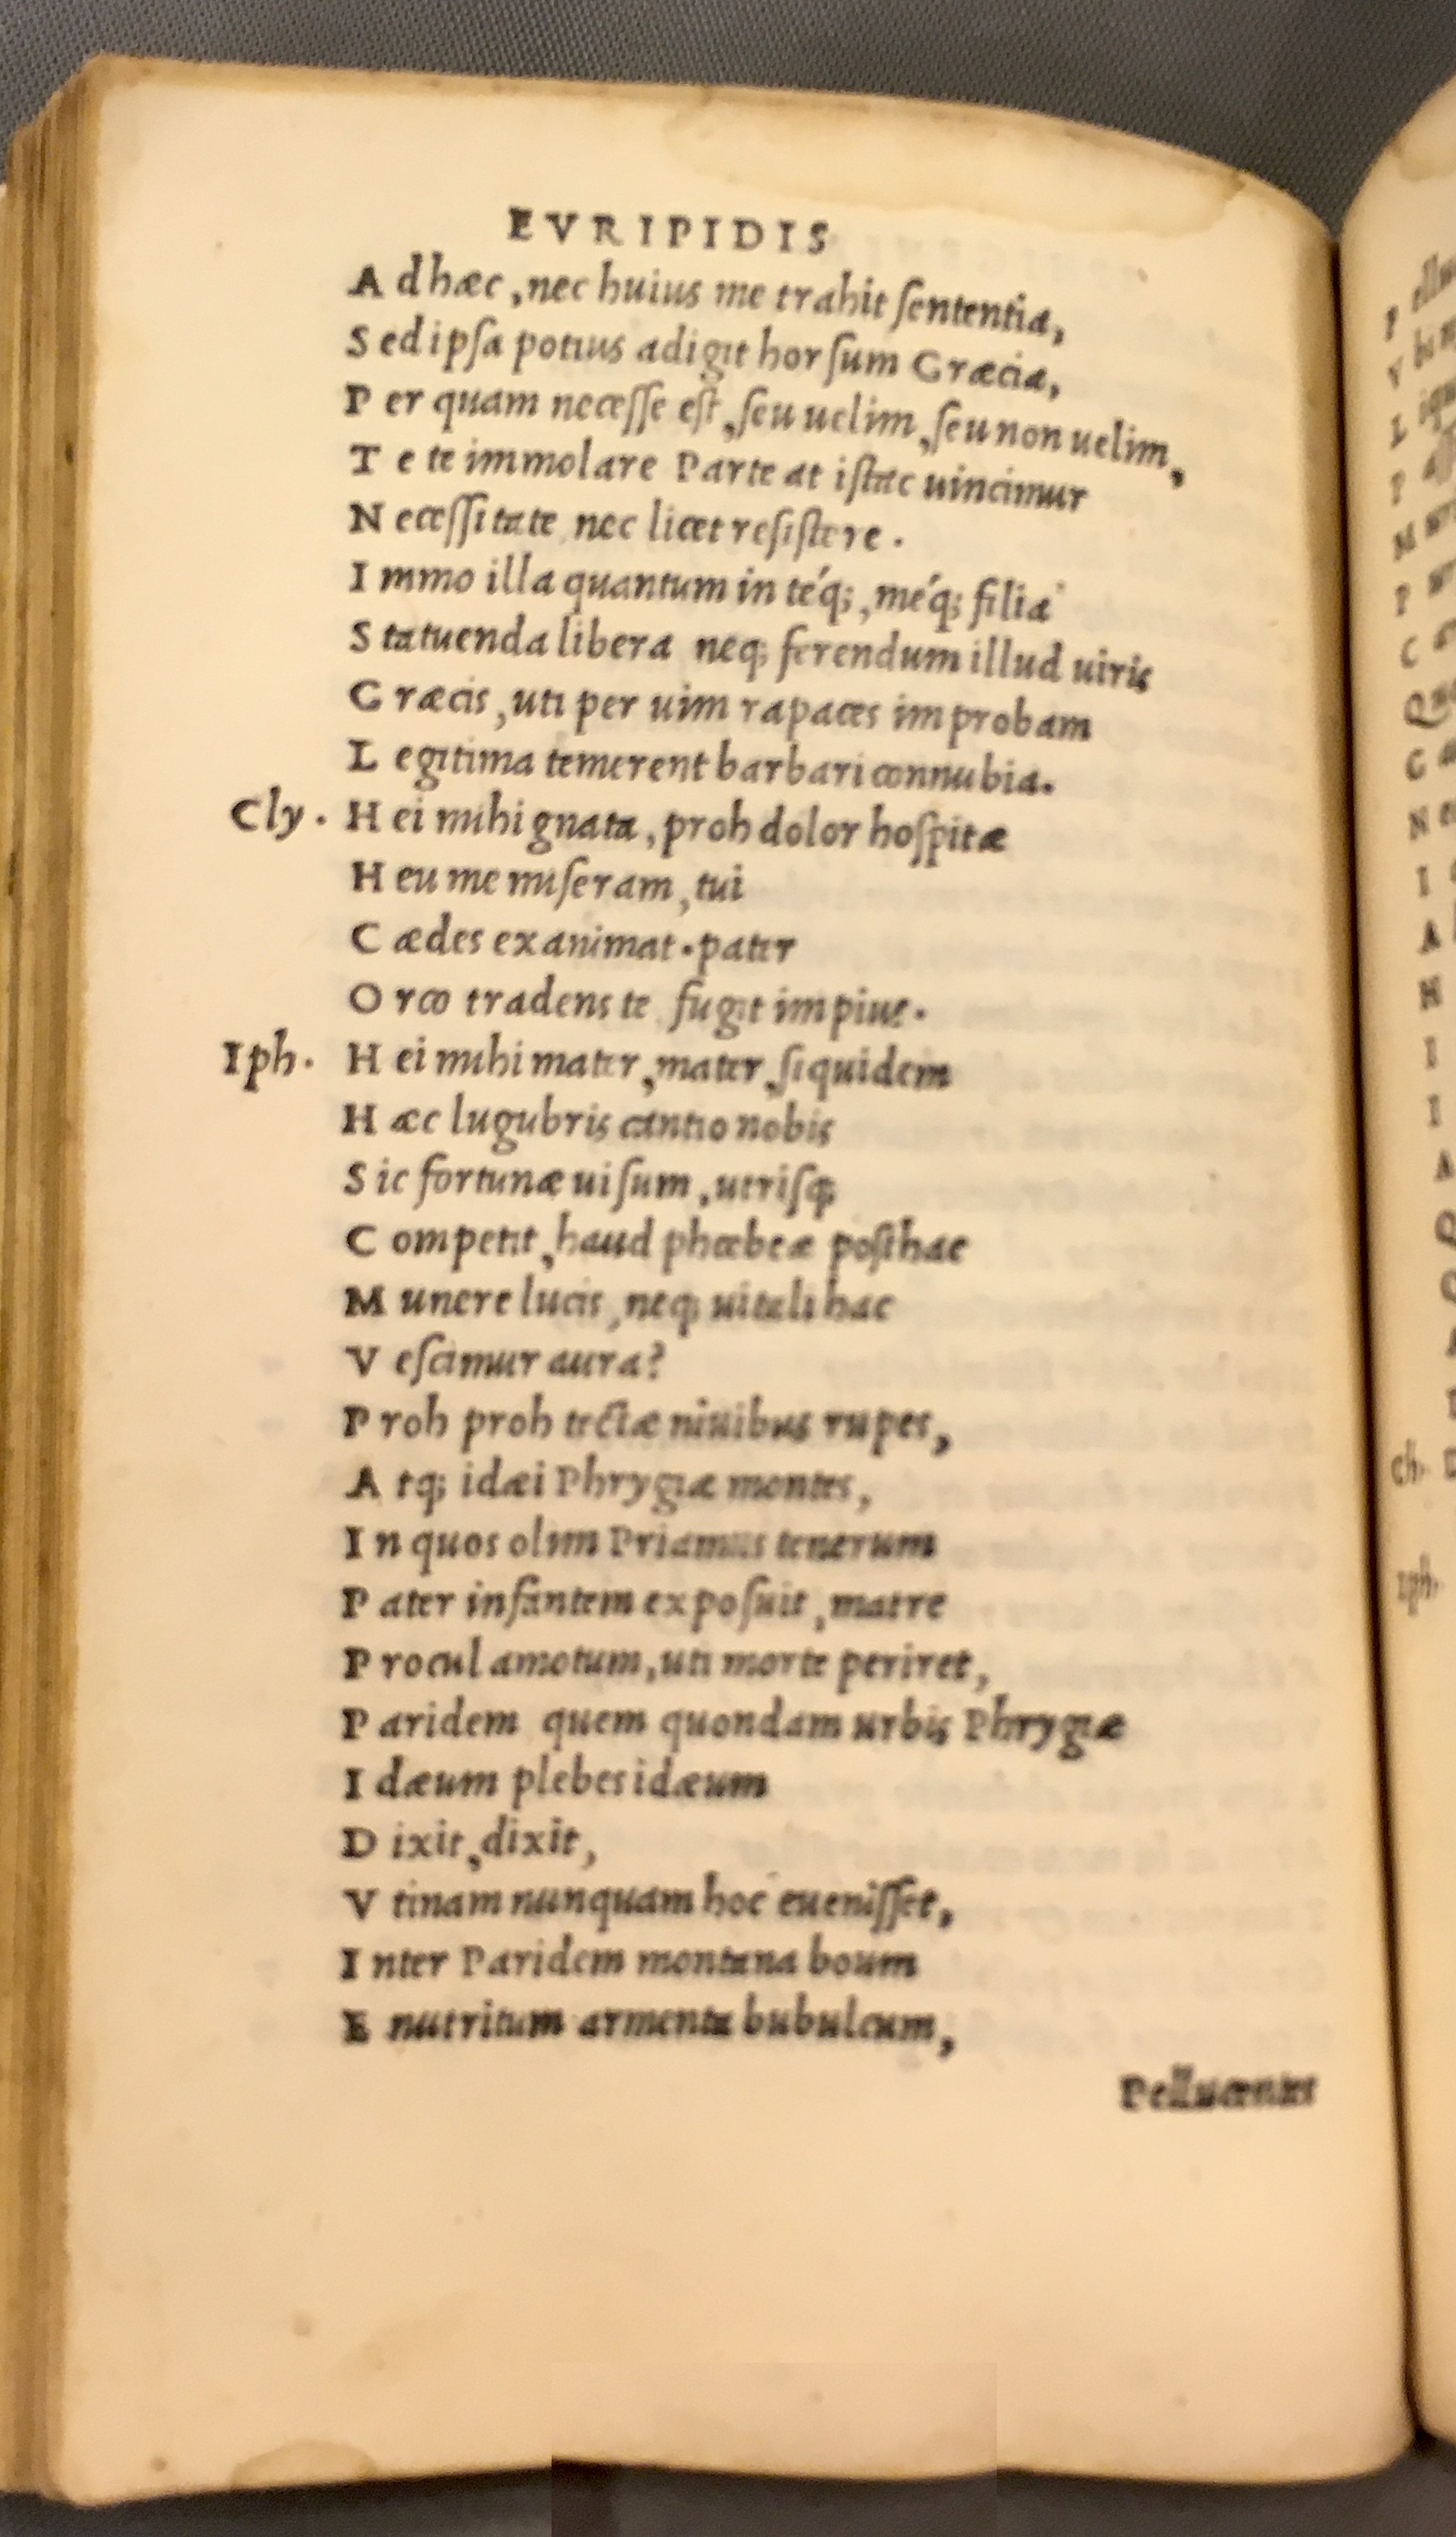 EVRIPIDIS
A d hæc, nec huius me trahit ſententia,
S ed ipſa potius adigit horſum Græcia,
P er quam neceſſe eſt, ſeu uelim, ſeu non uelim,
T e te immolare Parte at iſtac uincimur
N eceſſitate nec licet reſiſtere.
I mmo illa quantum in téq;, méq; filia
S tatuenda libera neq; ferendum illud uiris
G ræcis, uti per uim rapaces improbam
L egitima temerent barbari connubia.
Cly. H ei mihi gnata, proh dolor hoſpitæ
H eu me miſeram, tui
C ædes exanimat. pater
O rco tradens te fugit impius.
Iph. H ei mihi mater, mater, ſiquidem
H æc lugubris cantio nobis
S ic fortunæ uiſum, utriſq;
C ompetit, haud phœbeæ poſthac
M unere lucis, neq; uitali hac
V eſcimur aura?
P roh proh tectæ niuibus rupes,
A tq; idæi Phrygiæ montes,
I n quos olim Priamus tenerum
P ater infantem expoſuit, matre
P rocul amotum, uti morte periret,
P aridem quem quondam urbis Phrygiæ
I dæum plebes idæum
D ixit, dixit,
V tinam nunquam hoc eueniſſet,
I nter Paridem montana boum
E nutritum armenta bubulcum,
Pellucentes
Ch.
Iph.